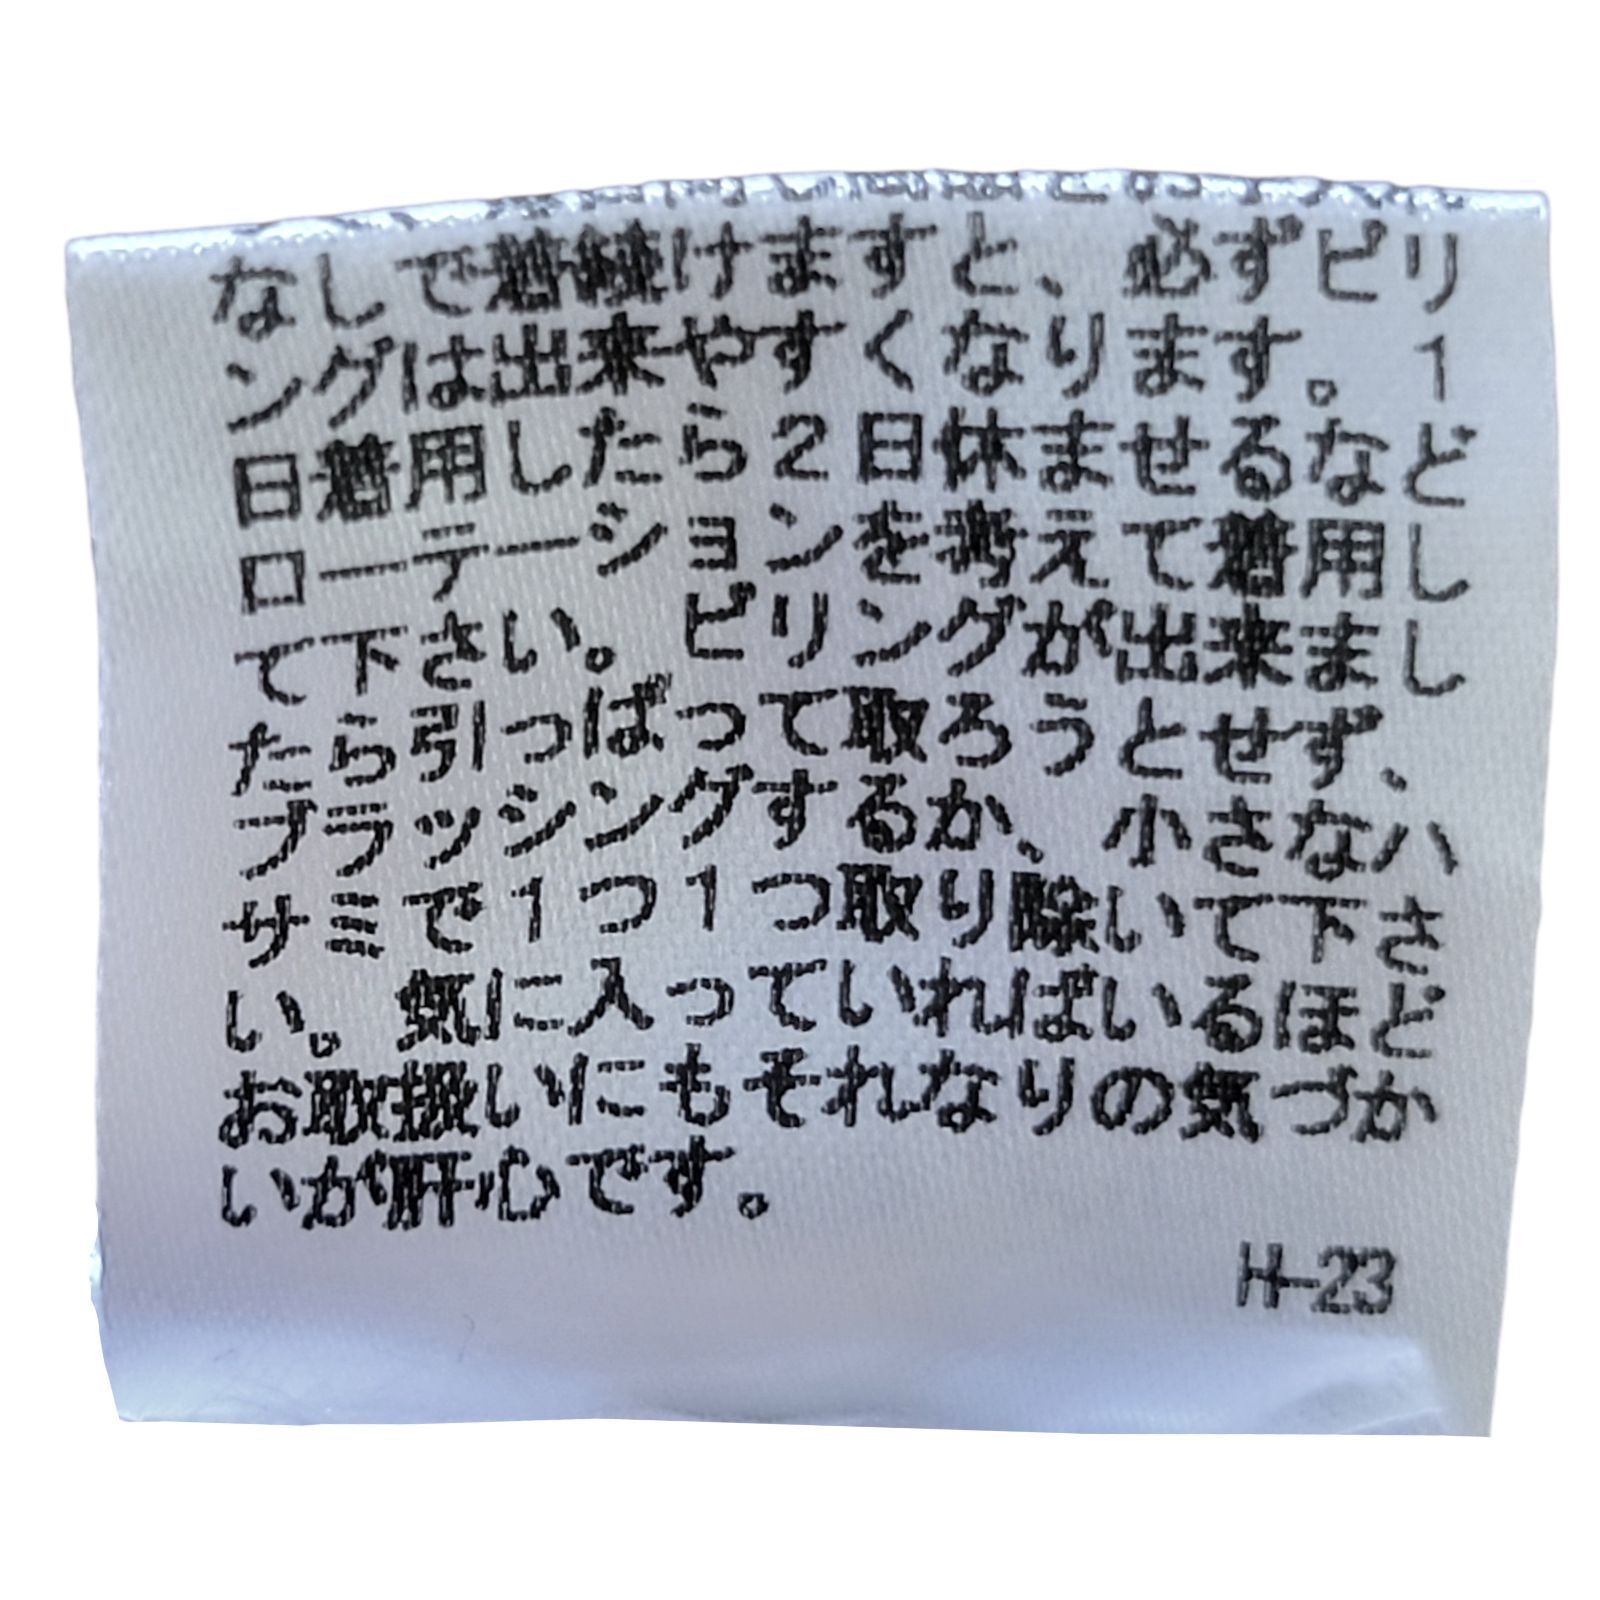 なしで着続けますと、必ずピリ
ングは出来やすくなります。1
日着用したら2日休ませるなど
ローテーションを考えて着用し
て下さい。ピリングが出来まし
たら引っぱって取ろうとせず、
ブラッシングするか、小さなハ
サミで1つ1つ取り除いて下さ
い。気に入っていればいるほど
お取扱いにもそれなりの気づか
いが肝心です。
H-23